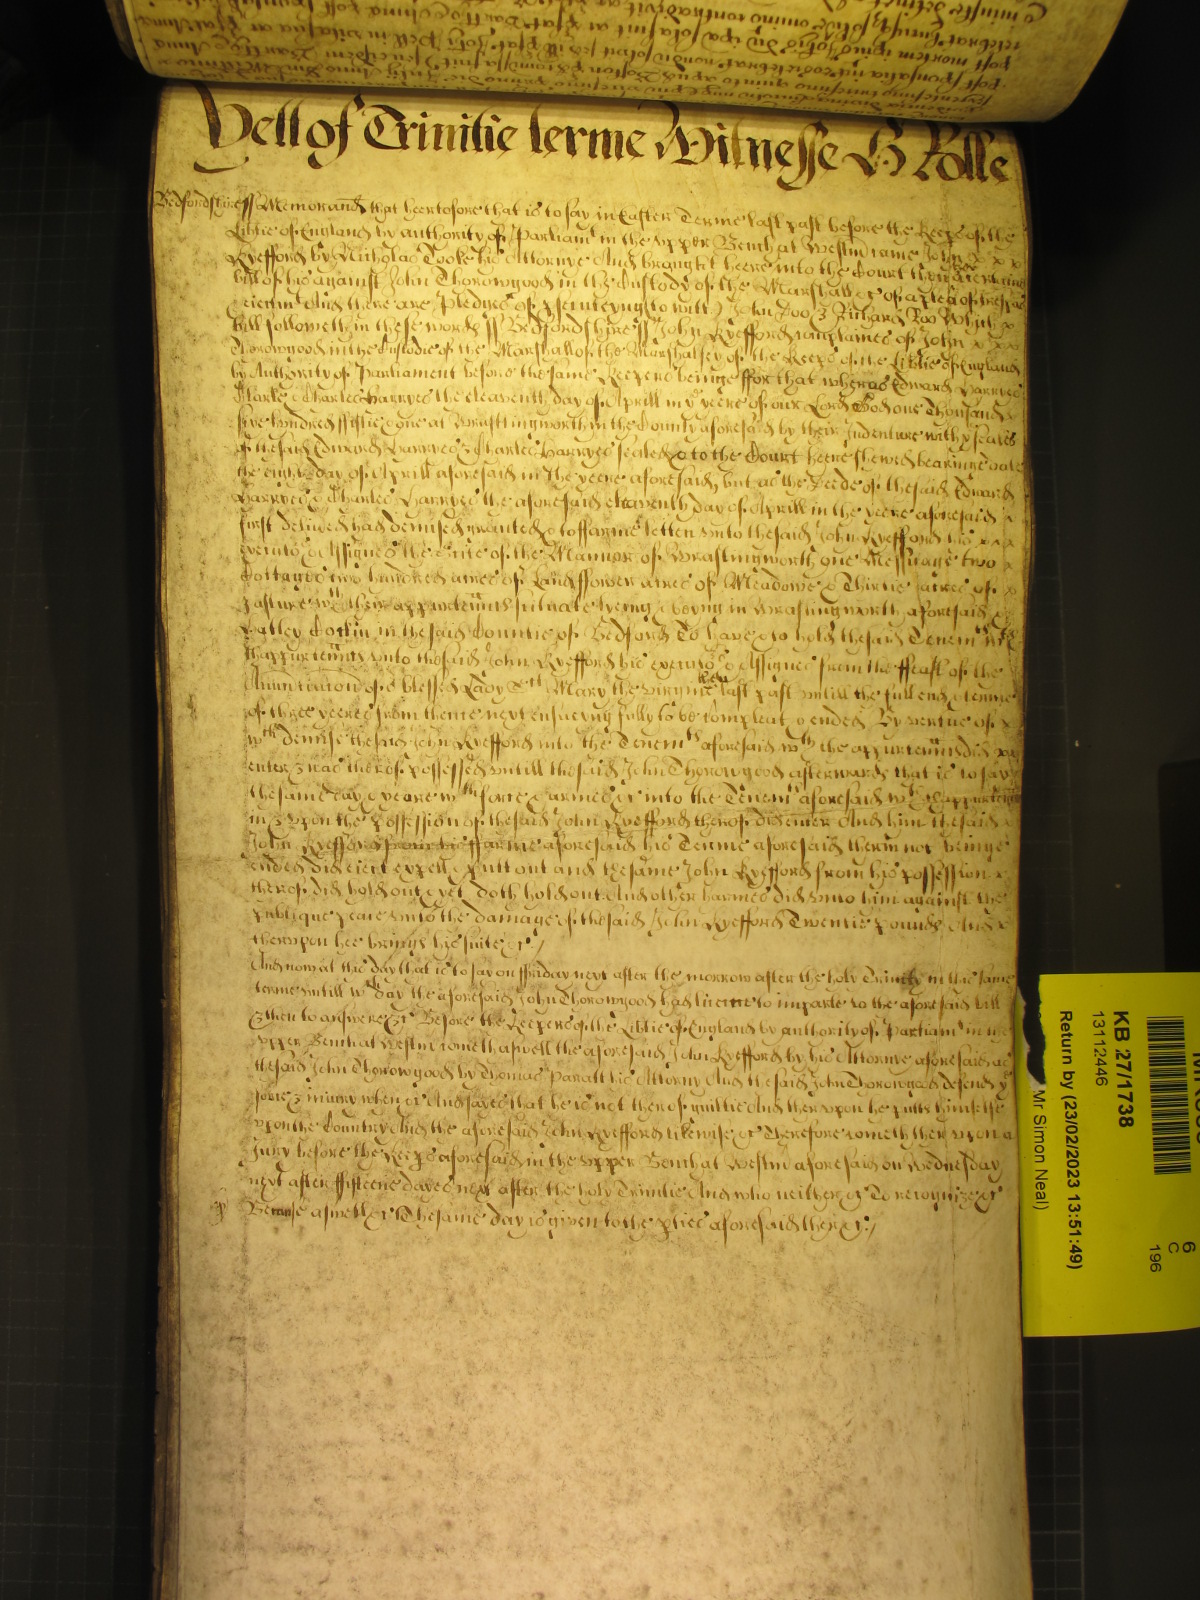 Yett of Trinitie terme Witnesse H Rolle
Bedfordshire ss Memorand that heertofore that is to say in Easter Terme last past before the Keeps of the
Libtie of England by authority of Parliamt in the upper Bench at Westm came John x x x
Ryefford by Nicholas Cooke his Attorney And brought heere into the Court then there a certaine
bill of his against John Thorowgood in the Custody of the Marshall &c of a plea of trespas
eiectmt And there are Pledges of psecuteyng to witt John Doo & Richard Roo Which x
bill followeth in these words ss Bedfordshire ss John Ryefford complaines of John x x x
Thorowgood in the Custodie of the Marshall of the Marshalsey of the Keeps of the Libtie of England
by Authority of Parliament before the same Keepers beinge ffor that wheras Edward Harryes
Clarke & Charles Harryes the eleaventh day of Aprill in ye yeere of our Lord God one Thousand x
sixe hundred ffiftie & one at Wrastlingworth in the County aforesaid by their Indenture with ye seales
of the said Edward Harryes & Charles Harryes sealed & to the Court heere shewed bearinge date
the eight day of Aprill aforesaid in the yeere aforesaid but as the Deede of the said Edward
Harryes & Charles Harryes the aforesaid eleaventh day of Aprill in the yeere aforesaid x
first delivered had demised graunted & to ffarme letten unto the said John Ryefford his x x x
Executors & Assignes the Scite of the Mannor of Wrastlingworth one Messuage two x
Cottages two hundred acres of Land ffower acres of Meadowe & Thirtie acres of x
Pasture wth their appurtennts scituate lyeing & beyng in Wrastlingworth aforesaid &
Hatley Cockin in the said Countie of Bedford To have & to hold the said Tenemts wth
thappurtennts unto the said John Ryefford his executors & Assignes from the ffeast of the
Annunciacion of ye blessed Lady St Mary the virgine then last past untill the full end & terme
of three yeeres from thence next ensueyng fully to be compleat & ended By vertue of x
wch demise the said John Ryefford into the Tenemts aforesaid wth the appurtennts did x x
enter & was therof possessed untill the said John Thorowgood afterwards that is to say
the same day & yeere wth force & armes &c into the Tenemts aforesaid wth thappurtennts
in & upon the Possession of the said John Ryefford therof did enter And him the said x
John Ryefford from his ffarme aforesaid his Terme aforesaid therin not beinge
ended did eiect expell & putt out and the same John Ryefford from his possession x
therof did hold out & yet doth hold out And other harmes did unto him against the
publique peace unto the damage of the said John Ryefford Twentie pounds And x
therupon hee brings his suite &c /
And now at this day that is to say on ffriday next after the morrow after the holy Trinity in this same
terme untill wch day the aforesaid John Thorowgood had licence to imparle to the aforesaid bill
& then to answere &c Before the Keepers of the Libtie of England by authority of Parliamt in the
upper Bench at Westm cometh aswell the aforesaid John Ryefford by his Attorney aforesaid as
the said John Thorowgood by Thomas Paratt his Attorny And the said John Thorowgood defends ye
force & iniury when &c And sayes that he is not therof guiltie And therupon he putts himselfe
upon the Country And the aforesaid John Ryefford likewise &c Therefore cometh therupon a
Jury before the Keeps aforesaid in the upper Bench at Westm aforesaid on Wednesday
next after ffifteene dayes next after the holy Trinitie And who neither &c To recognize &c
Because aswell &c The same day is given to the pties aforesaid there &c /
KB 27/1738
13112446
Return by (23/02/2023 13:51:49)
Mr Simon Neal)
6
C
196